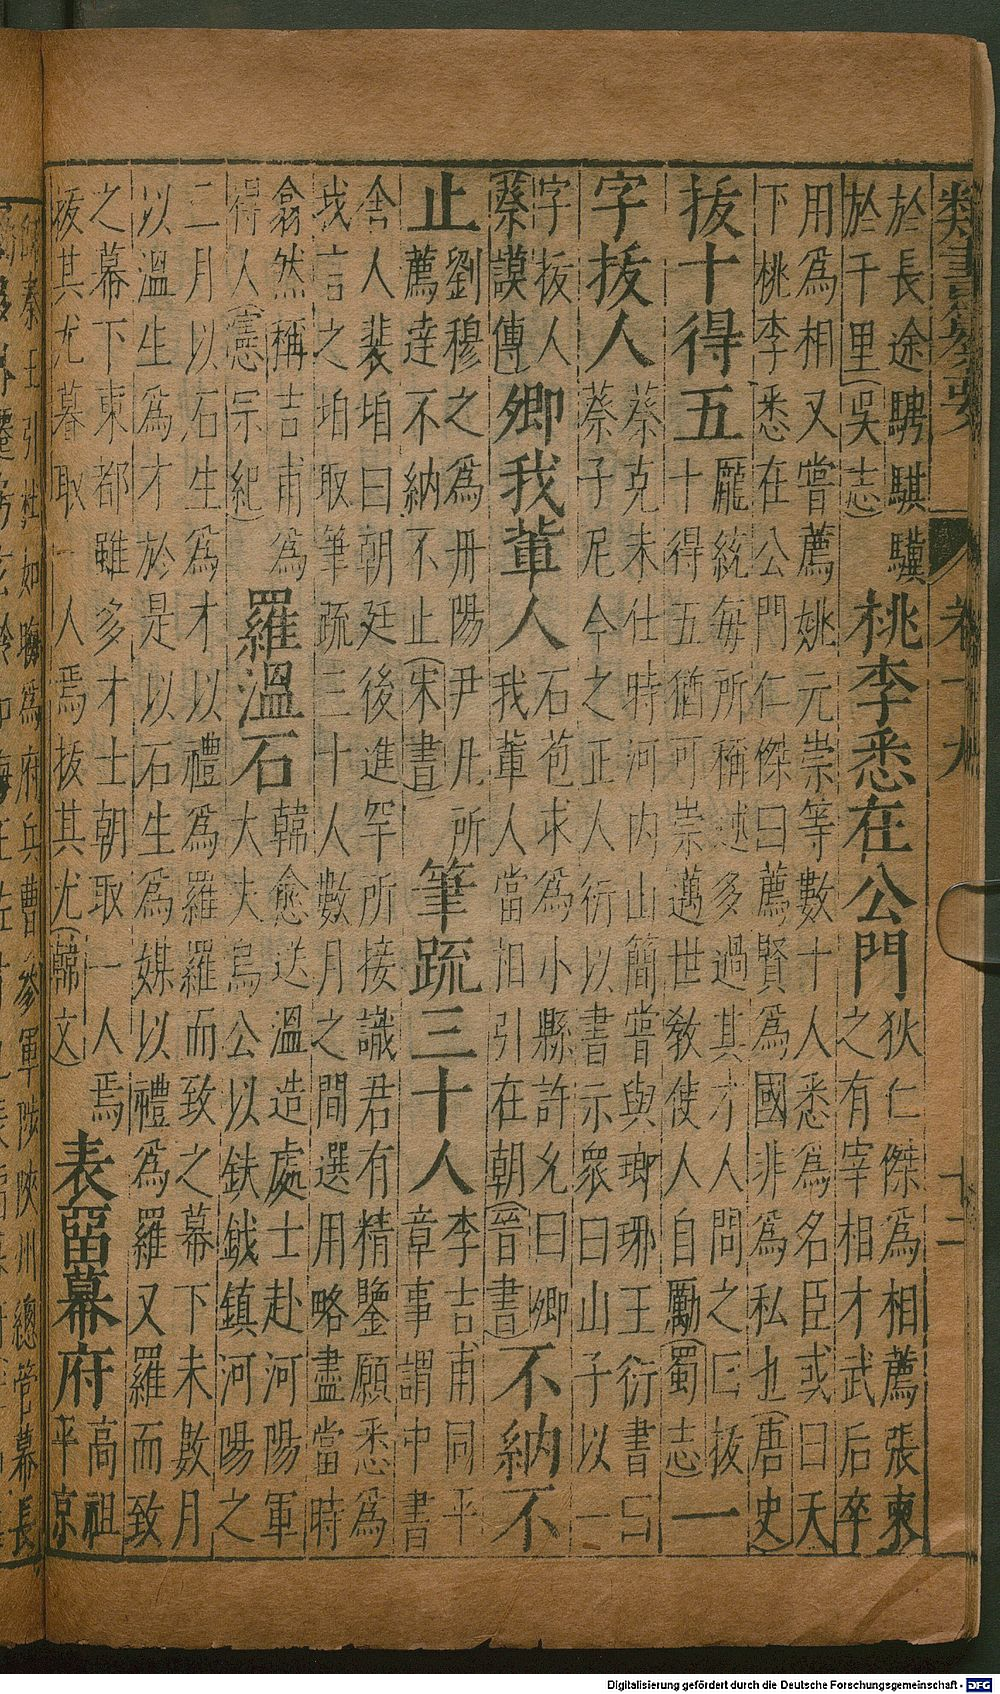 於長途騁騏驥
於千里(吳志)
桃李悉在公門
狄仁傑爲相薦張柬
之有宰相才武后卒
用爲相又嘗薦姚元崇等數十人悉爲名臣或曰天
下桃李悉在公門仁傑曰薦賢爲國非爲私也(唐史)
拔十得五
龐統每所稱述多過其才人問之曰拔
十得五猶可崇邁世敎使人自勵(蜀志)
一
字拔人
蔡克未仕時河内山簡嘗與瑯琊王衍書曰
蔡子尼今之正人衍以書示衆曰山子以一
字拔人
(蔡謨傳)
卿我輩人
石苞求爲小縣許允曰卿
我輩人當相引在朝(晉書)
不納不
止
劉穆之爲丹陽尹凡所
薦達不納不止(宋書)
筆疏三十人
李吉甫同平
章事謂中書
舍人裴垍曰朝廷後進罕所接識君有精鑒願悉爲
我言之垍取筆疏三十人數月之間選用略盡當時
翕然稱吉甫爲
得人(憲宗紀)
羅溫石
韓愈送溫造處士赴河陽軍
大夫烏公以鈇鉞鎮河陽之
二月以石生爲才以禮爲羅羅而致之幕下未數月
以溫生爲才於是以石生爲媒以禮爲羅又羅而致
之幕下東都雖多才士朝取一人焉
拔其尤暮取一人焉拔其尤(韓文)
表畱幕府
高祖
平京
卷一九
十二
Digitalisierung gefördert durch die Deutsche Forschungsgemeinschaft - DFG